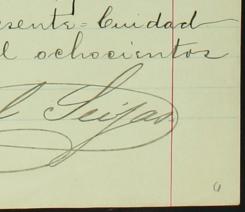 esente = Cuidad
l ochocientos
l Seijas